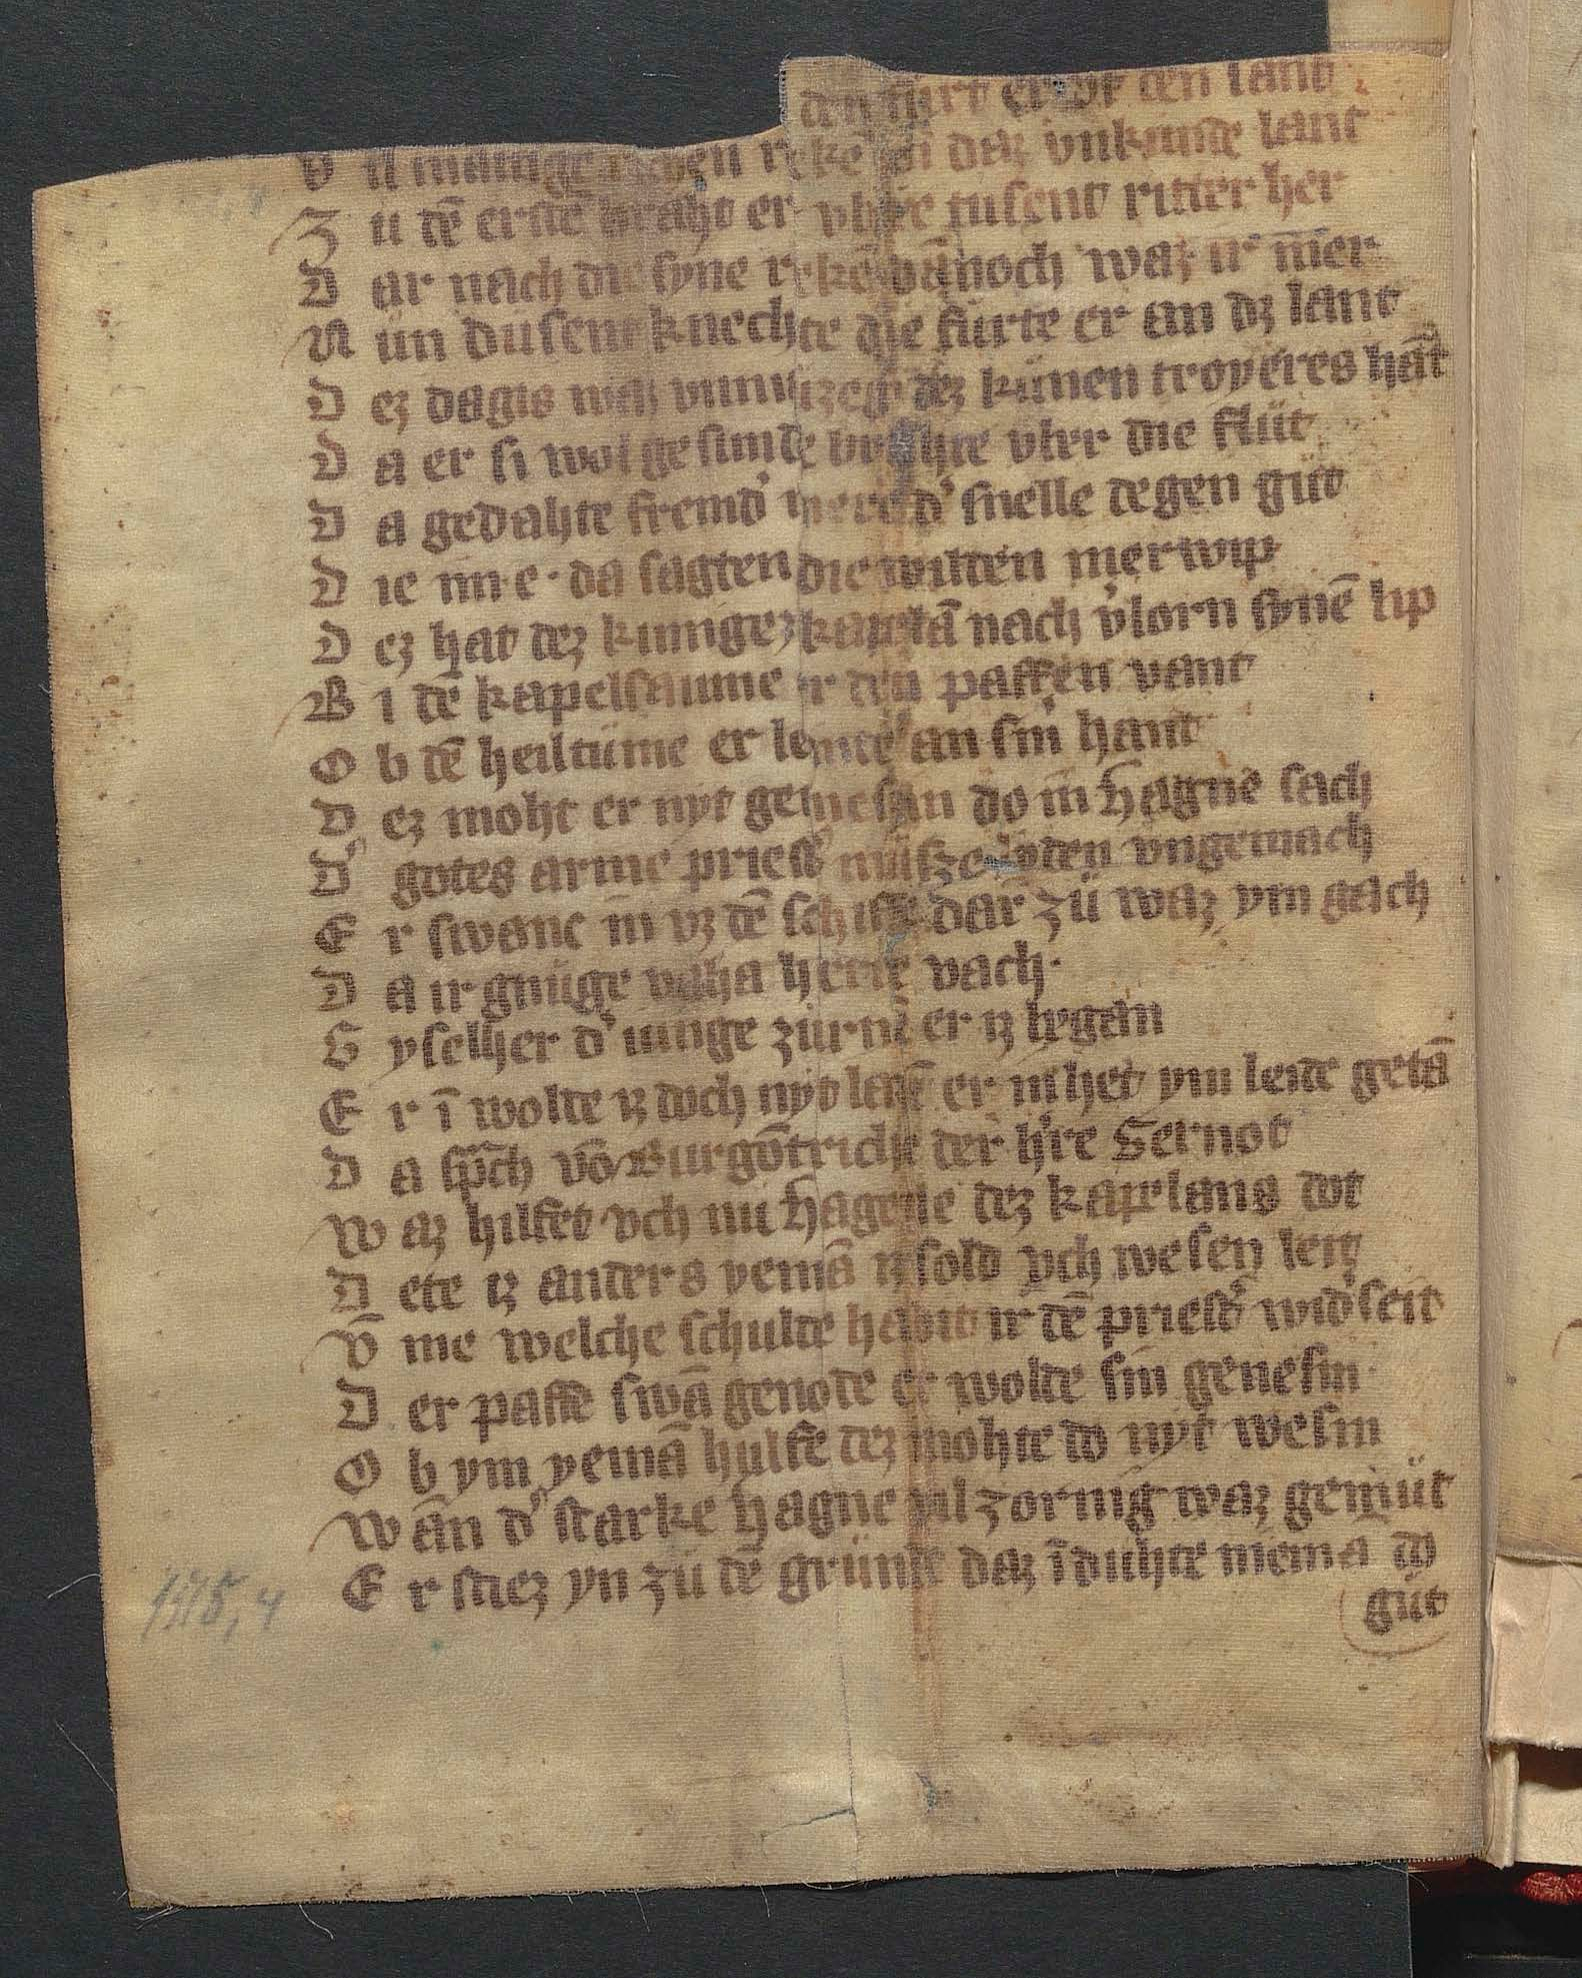 den furt er vf den sand
V il manige richen reke in daz vnkunde lant
Z u dē erste braht er vbere tusent ritter her
D ar nach die syne rekē dānoch waz ir mer
N ün dusent knechte die fürte er an dz lant
D ez dagis waz vnmüzeg dez künen troyeres hāt
D a er si wol gesunde brahte vber die flüt
D a gedahte fremd' mere d' snelle degen güt
D ie im e · da sagten die wilden merwip
D ez hat dez kunigez kaplā nach v'lorn synē lip
B i dē kapelsaume er den paffen vant
O b dē heiltüme er lente an sin hant
D ez moht er nyt genesin do in Hagne sach
D' gotes arme priest' müsze lyden vngemach
E r swanc in vz dē schiffe dar zü waz ym gach
D a ir gnüge vaha herre vach ·
G yselher d' iunge zürnē er iz began
E r ī wolte iz doch nyt lasē er in het ym leide getā
D a sp̄ch vō Burgōtriche der h're Gernot
W az hilfet vch nu Hagene dez kapelans dot
D ete iz anders yemā iz sold ych wesen leit
V̄ me welche schulde habit ir dē priest' wid'seit
D er paffe swā genote er wolte sin genesin
O b ym yemā hulfe dez mohte do nyt wesin
W an d' starke Hagne vil zornig waz gemüt
E r stiez yn zü dē grunde daz ī duhte niemā do
güt
1515, 4